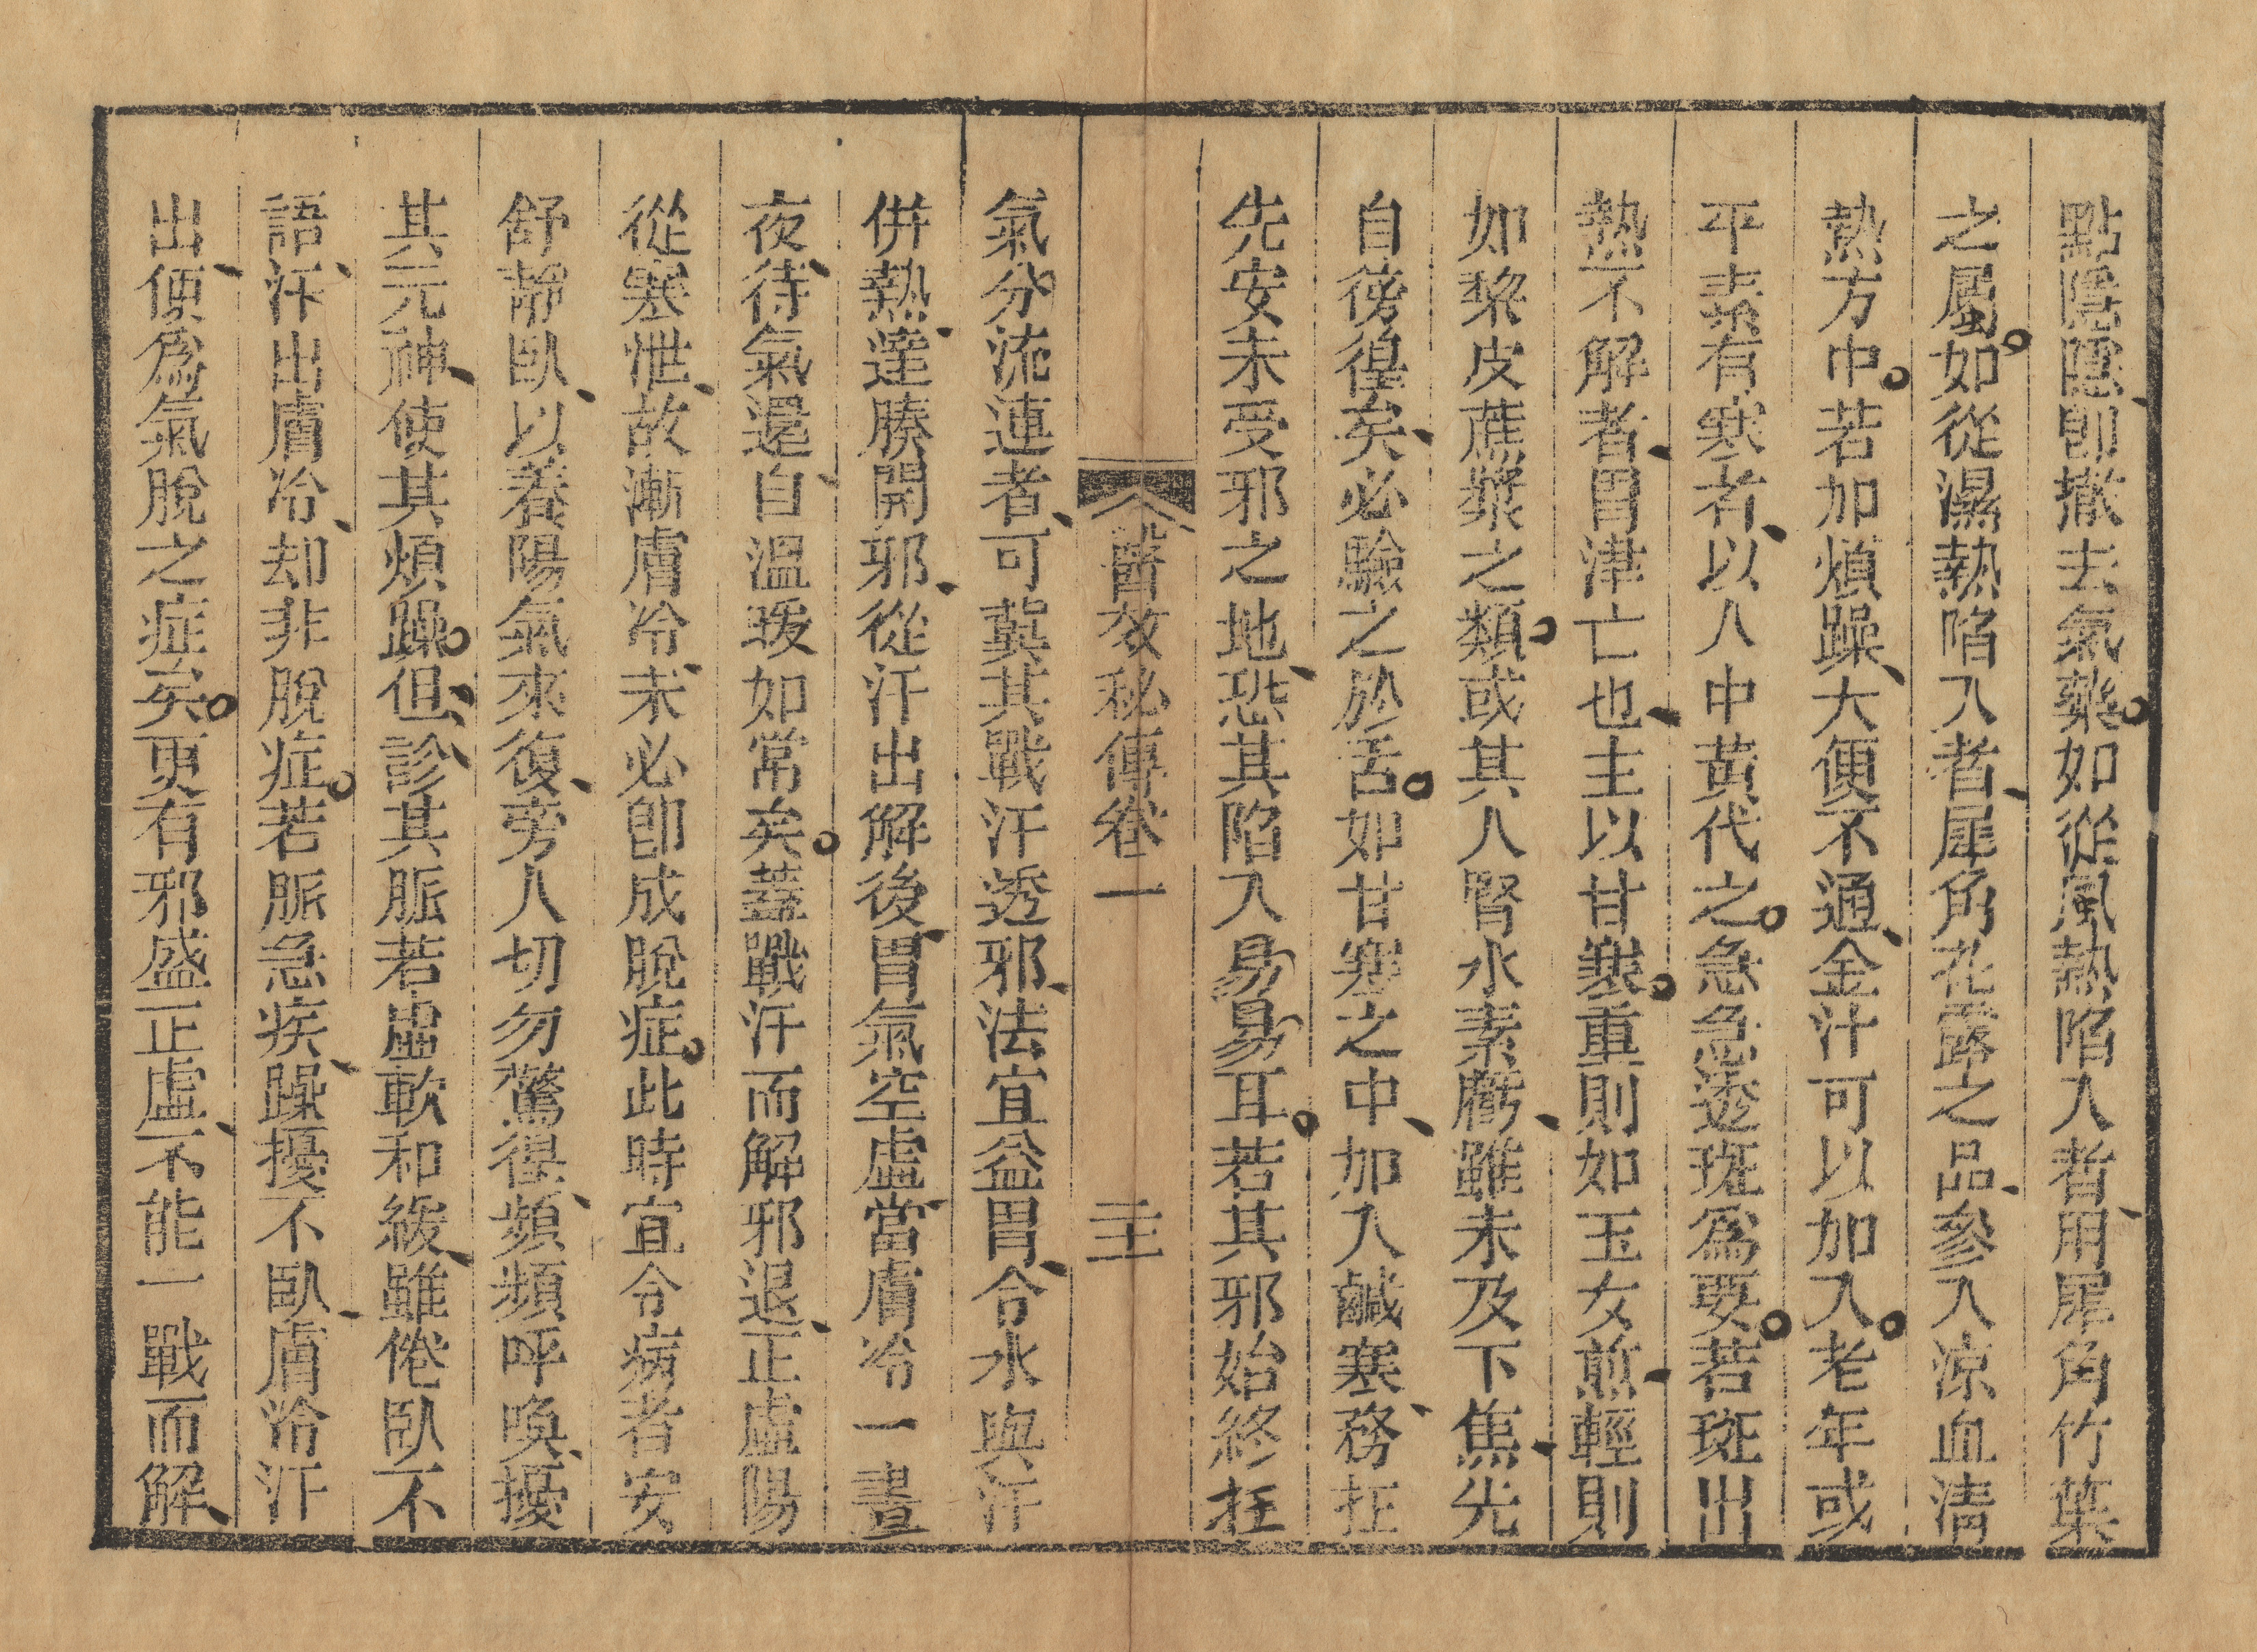 點隱隱、卽撤去氣藥。如從風熱陷入者、用犀角竹葉
之屬。如從濕熱陷入者、犀角花露之品、參入凉血淸
熱方中。若加煩躁、大便不通、金汁可以加入。老年或
平素有寒者、以人中黃代之。急急透斑爲要。若斑出
熱不解者、胃津亡也、主以甘寒。重則如玉女煎、輕則
如黎皮蔗漿之類。或其人腎水素虧、雖未及下焦、先
自徬徨矣、必驗之於舌。如甘寒之中、加入鹹寒、務在
先安未受邪之地、恐其陷入易易耳。若其邪始終在
醫效秘傳卷一 三
氣分流連者、可冀其戰汗透邪、法宜益胃、令水與汗
倂、熱達腠開、邪從汗出解後、胃氣空虛、當膚冷一晝
夜、待氣還、自溫暖如常矣。蓋戰汗而解邪退、正虛陽
從寒泄、故漸膚冷、未必卽成脫症。此時宜令病者安
舒靜臥、以養陽氣來復、旁人切勿驚惶、頻頻呼喚、擾
其元神、使其煩躁。但、診、其脈若虛軟和緩、雖倦臥不
語、汗出膚冷、却非脫症。若脈急疾、躁擾不臥、膚冷汗
出、便爲氣脫之症矣。更有邪盛正虛、不能一戰而解、